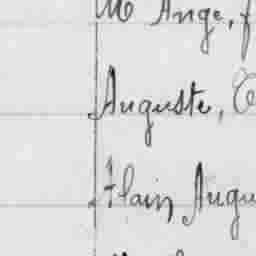 M Ange, f
Auguste, E
Alain Augu